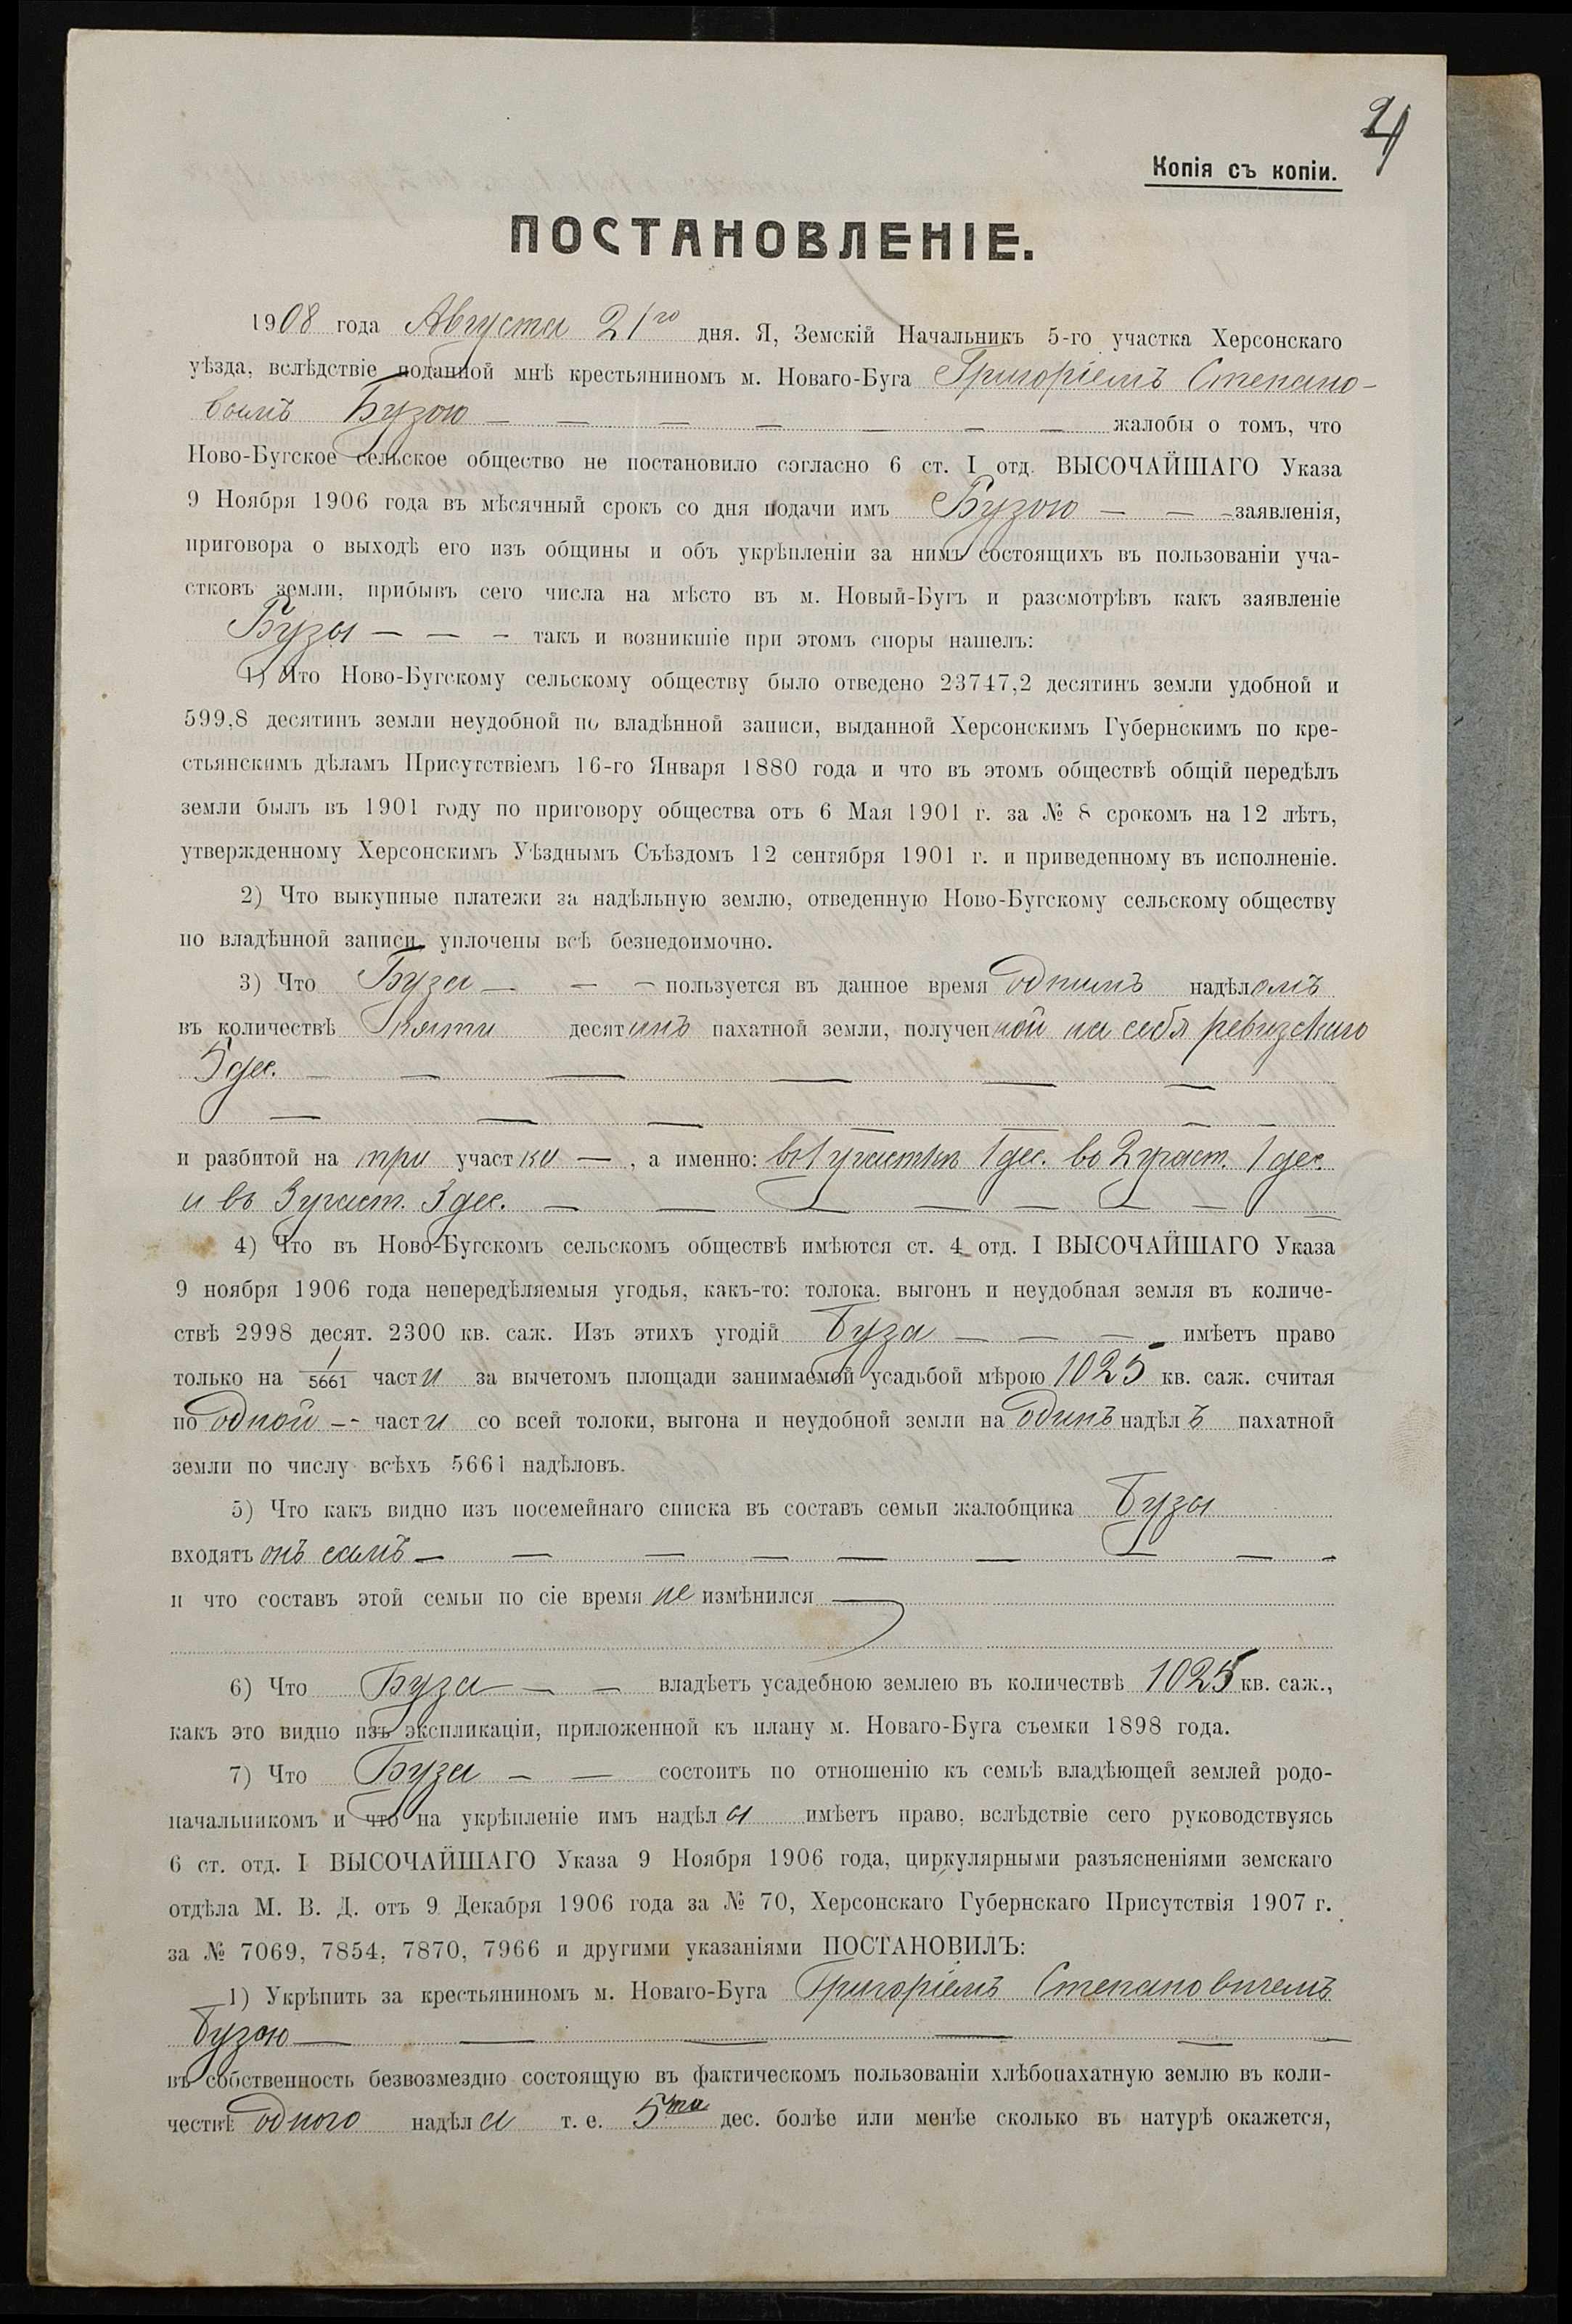 24
Копія съ копіи.
ПОСТАНОВЛЕНІЕ.
1908 года Августа 21го дня. Я, Земскій Начальникъ 5-го участка Херсонскаго
уѣзда, вслѣдствіе поданной мнѣ крестьяниномъ м. Новаго-Буга Григоріемъ Степано-
вымъ Бузою — — — — — — — жалобы о томъ, что
Ново-Бугское сельское общество не постановило согласно 6 ст. I отд. ВЫСОЧАЙШАГО Указа
9 Ноября 1906 года въ мѣсячный срокъ со дня подачи имъ Бузою — — — заявленія,
приговора о выходѣ его изъ общины и объ укрѣпленіи за нимъ состоящихъ въ пользованіи уча-
стковъ земли, прибывъ сего числа на мѣсто въ м. Новый-Бугъ и разсмотрѣвъ какъ заявленіе
Бузы — — — такъ и возникшіе при этомъ споры нашелъ:
1) Что Ново-Бугскому сельскому обществу было отведено 23747,2 десятинъ земли удобной и
599,8 десятинъ земли неудобной по владѣнной записи, выданной Херсонскимъ Губернскимъ по кре-
стьянскимъ дѣламъ Присутствіемъ 16-го Января 1880 года и что въ этомъ обществѣ общій передѣлъ
земли былъ въ 1901 году по приговору общества отъ 6 Мая 1901 г. за № 8 срокомъ на 12 лѣтъ,
утвержденному Херсонскимъ Уѣзднымъ Съѣздомъ 12 сентября 1901 г. и приведенному въ исполненіе.
2) Что выкупные платежи за надѣльную землю, отведенную Ново-Бугскому сельскому обществу
по владѣнной записи, уплочены всѣ безнедоимочно.
3) Что Буза — — — пользуется въ данное время однимъ надѣломъ
въ количествѣ пяти десятинъ пахатной земли, полученной на себя ревизскаго
5 дес. — — — — — —
— — — — — —
и разбитой на три участки — , а именно: въ 1 участкѣ 1 дес. во 2 участ. 1 дес.
и въ 3 участ. 3 дес. — — — — — — — —
4) Что въ Ново-Бугскомъ сельскомъ обществѣ имѣются ст. 4 отд. I ВЫСОЧАЙШАГО Указа
9 ноября 1906 года непередѣляемыя угодья, какъ-то: толока, выгонъ и неудобная земля въ количе-
ствѣ 2998 десят. 2300 кв. саж. Изъ этихъ угодій Буза — — — имѣетъ право
только на 1/5661 части за вычетомъ площади занимаемой усадьбой мѣрою 1025 кв. саж. считая
по одной -- части со всей толоки, выгона и неудобной земли на одинъ надѣлъ пахатной
земли по числу всѣхъ 5661 надѣловъ.
5) Что какъ видно изъ посемейнаго списка въ составъ семьи жалобщика Бузы
входятъ онъ самъ — — — — — — — — —
и что составъ этой семьи по сіе время не измѣнился —
6) Что Буза — — владѣетъ усадебною землею въ количествѣ 1025 кв. саж.,
какъ это видно изъ экспликаціи, приложенной къ плану м. Новаго-Буга съемки 1898 года.
7) Что Буза — — состоитъ по отношенію къ семьѣ владѣющей землей родо-
начальникомъ и что на укрѣпленіе имъ надѣлы имѣетъ право, вслѣдствіе сего руководствуясь
6 ст. отд. I ВЫСОЧАЙШАГО Указа 9 Ноября 1906 года, циркулярными разъясненіями земскаго
отдѣла М. В. Д. отъ 9 Декабря 1906 года за № 70, Херсонскаго Губернскаго Присутствія 1907 г.
за № 7069, 7854, 7870, 7966 и другими указаніями ПОСТАНОВИЛЪ:
1) Укрѣпить за крестьяниномъ м. Новаго-Буга Григоріемъ Степановичемъ
Бузою — — — — — —
въ собственность безвозмездно состоящую въ фактическомъ пользованіи хлѣбопахатную землю въ коли-
чествѣ одного надѣла т. е. 5ти дес. болѣе или менѣе сколько въ натурѣ окажется,